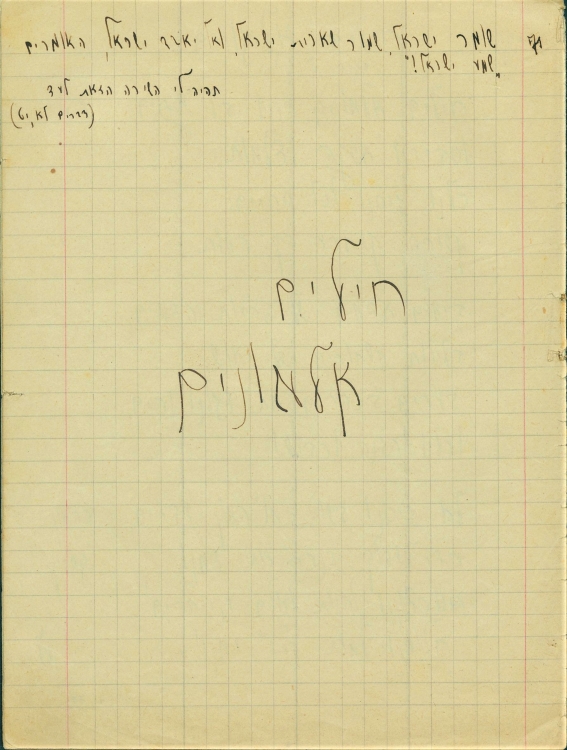 שומר ישראל, שמור שארית ישראל, ואל יאבד ישראל, האומרים
„שמע ישראל!"
תהיה לי השירה הזאת לעד
(דברים לא, יט)
חילים
אלמונים